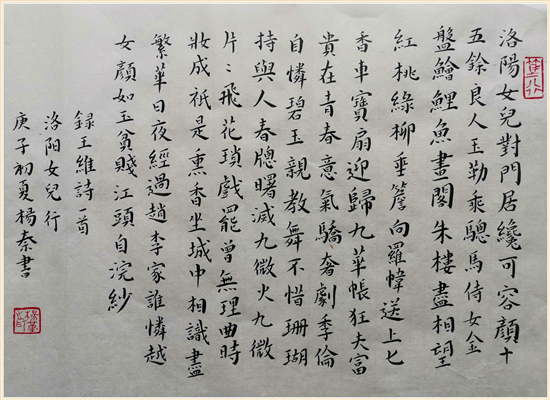 洛陽女兒對門居纔可容顏十
五餘良人玉勒乘驄馬侍女金
盤鱠鯉魚畫閣朱樓盡相望
紅桃綠柳垂簷向羅幃送上七
香車寶扇迎歸九華帳狂夫富
貴在青春意氣驕奢劇季倫
自憐碧玉親教舞不惜珊瑚
持與人春牕曙滅九微火九微
片〻飛花瑣戲罷曾無理曲時
妝成祇是熏香坐城中相識盡
繁華日夜經過趙李家誰憐越
女顏如玉貧賤江頭自浣紗
錄王維詩一首
洛陽女兒行
庚子初夏楊秦書